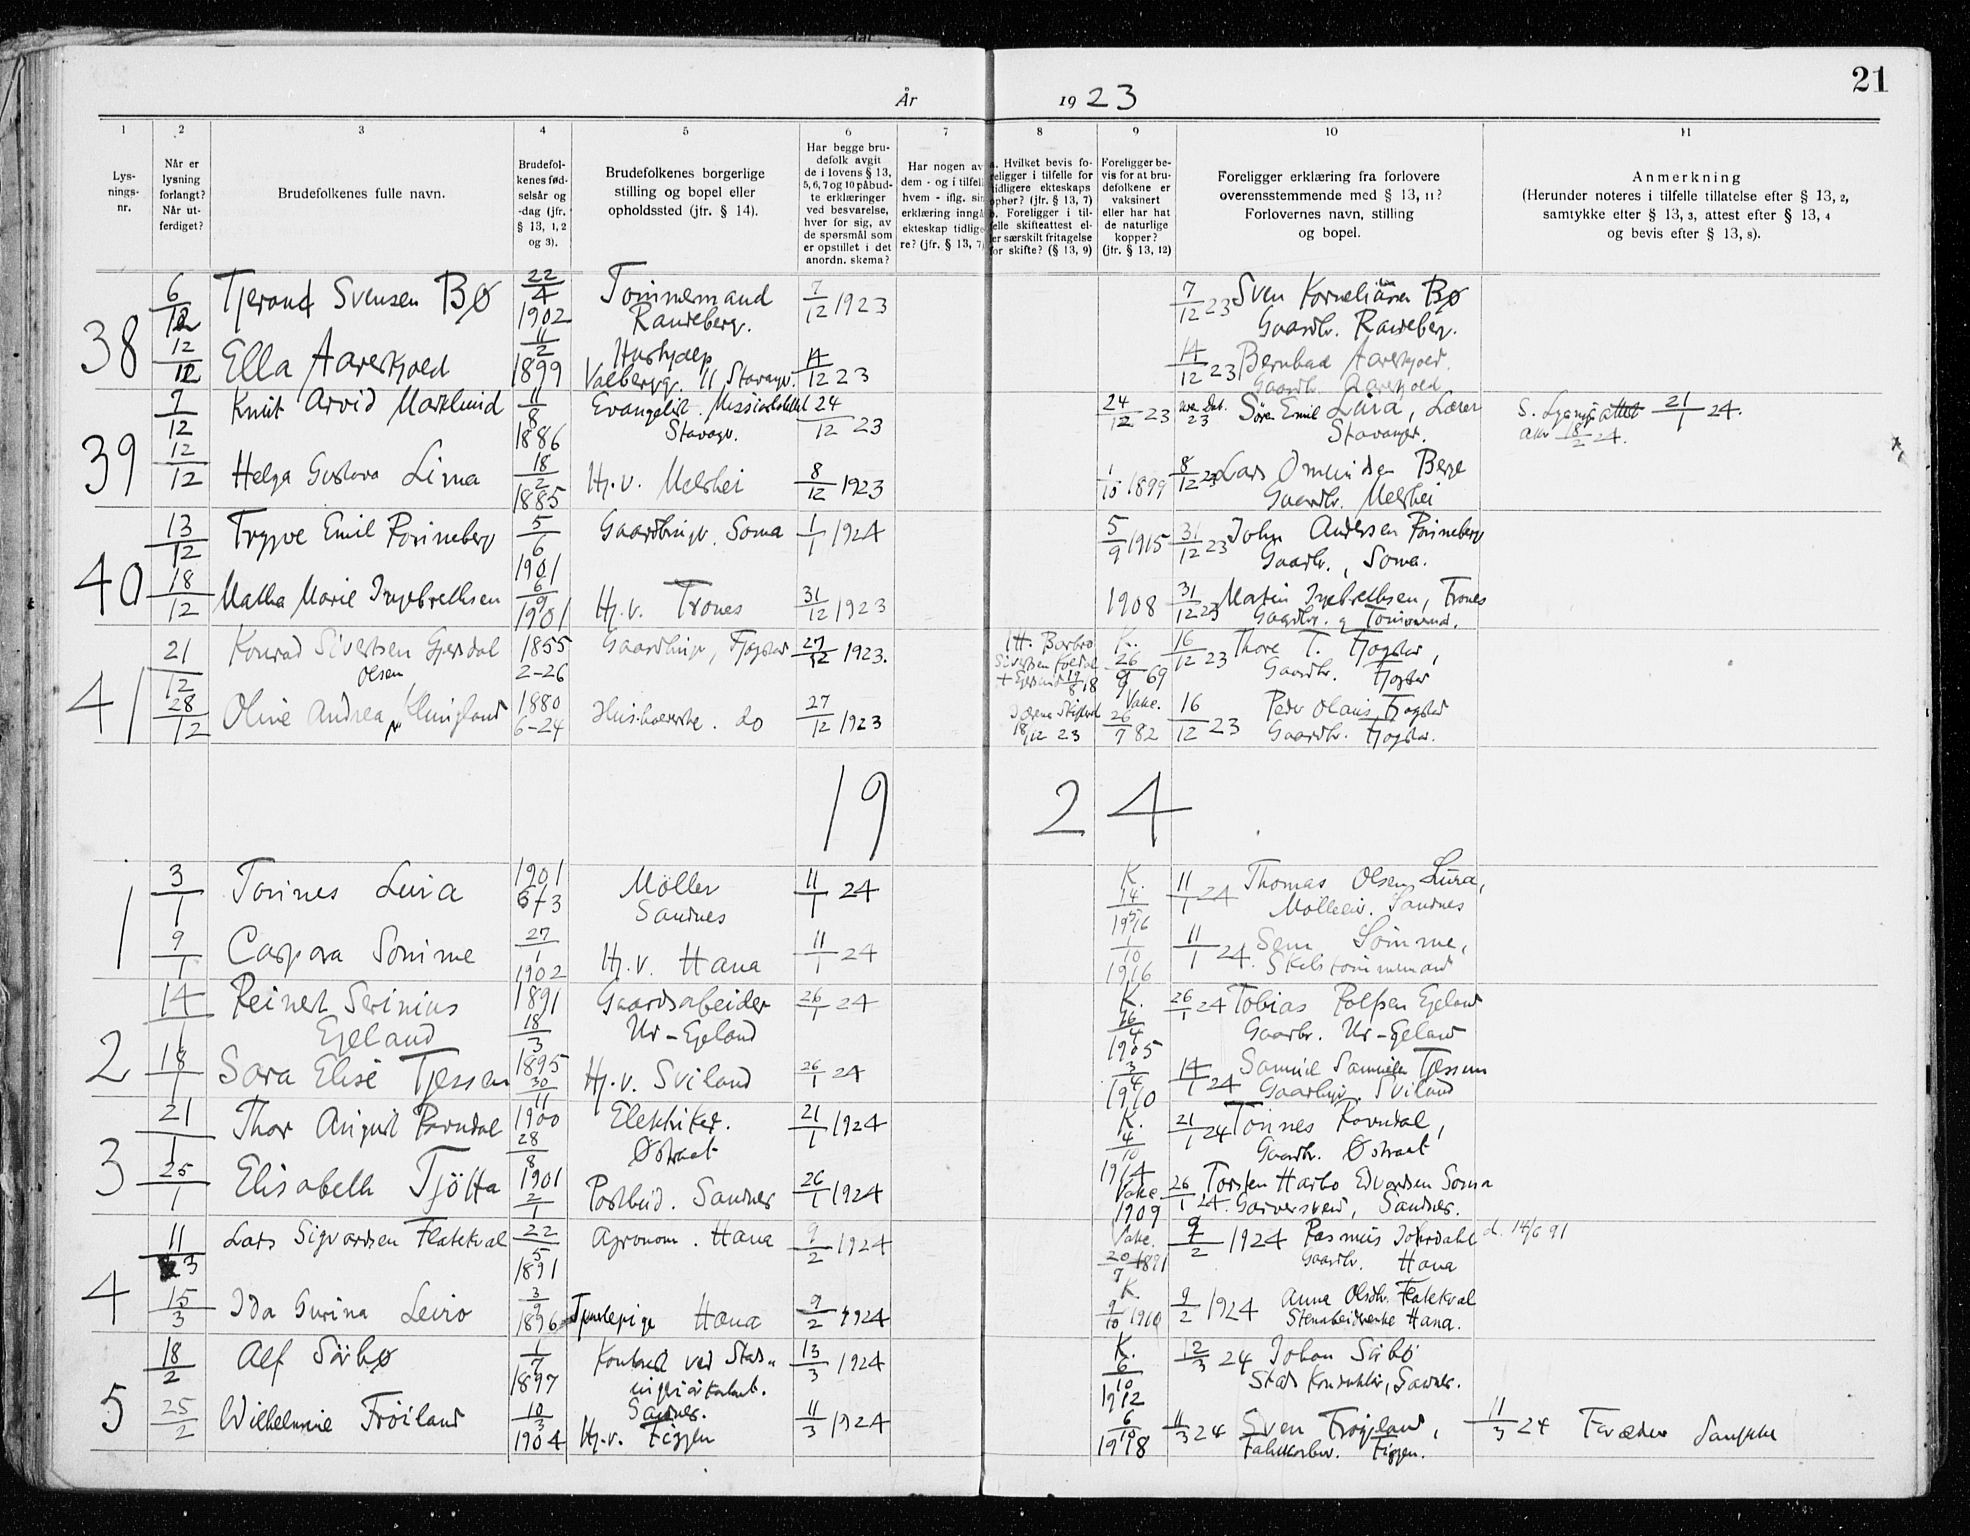 21
År 1923
1 2 3 4 5 6 7 8 9 10 11
Lys-
nings-
nr.
Når er
lysning
forlangt?
Når ut-
ferdiget?
Brudefolkenes fulle navn.
Brudefol-
kenes fød-
selsår og
-dag (jfr.
§ 13, 1, 2
og 3).
Brudefolkenes borgerlige
stilling og bopel eller
opholdssted (jfr. § 14).
Har begge bru-
defolk avgit
de i lovens § 13,
5, 6, 7 og 10 påbud-
te erklæringer
ved besvarelse,
hver for sig, av
de spørsmål som
er opstillet i det
anordn. skema?
Har nogen av
dem - og i tilfel
hvem - iflg. si
erklæring inngå
ekteskap tidlig
re? (jfr. § 13, 7)
a. Hvilket bevis fo-
religger i tilfelle for
tidligere ekteskaps
ophør? (jfr. § 13, 7)
b. Foreligger i til-
felle skifteattest el-
er særskilt fritagelse
for skifte? (§ 13, 9)
Foreligger be-
vis for at bru-
defolkene er
vaksinert
eller har hat
de naturlige
kopper?
(jfr. § 13, 12)
Foreligger erklæring fra forlovere
overensstemmende med § 13, 11?
Forlovernes navn, stilling
og bopel.
Anmerkning
(Herunder noteres i tilfelle tillatelse efter § 13, 2,
samtykke efter § 13, 3, attest efter § 13, 4
og bevis efter § 13, 8).
38
6/12 Tjerand Svensen BØ 22/4 1902 Tømmermand Randeberg. 7/12 1923 7/12 23 Sven Korneliusen BØ
Gaardbr. Randeberg.
12/12 Ella Aareskjoed 11/2 1899 Hushjaelp Valbergg. 11 Stavagr. 14/12 23 14/12 23 Bernhad Aareskjoed.
Gaardb. Aareskjoed
39
9/12 Knut Arvid Marklund 11/8 1886 Evangelist. Stavagr. 24/12 23 24/12 23 Søren Emil Lura, Lærer
Stavanger.
21/1 24.
18/2 24.
12/12 Helga Gustava Lima 18/2 1885 Hj. v. Melshei 8/12 1923 1/10 1899 8/12 23 Lars Omundsen Berge
Gaardbr. Melshei
40
13/12 Trygve Emil Rønneberg 5/6 1901 Soma 1/1 1924 5/9 1915 31/12 23 John Andersen Rønneberg
Gaardb., Soma.
18/12 Malla Marie Ingebrethsen 6/9 1901 Hj. v. Trones 31/12 1923 1908 31/12 23 Martin Ingebrethsen, Trones
Gaardbr. g Tømmermd.
41
21/12 Konrad Sivertsen Gjesdal 1855 2-26 Gaardbruger, Fjogstad 27/12 1923. K. 26/9 69 16/12 23 Thore T. Fjogstad,
Gaardbr. Fjogstad
28/12 Oline Andrea Olsen Hungland 1880 6-24 do 27/12 1923 18/12 23 Vake. 26/7 82 16/12 23 Peder Olaus Fjogstad
Gaardbr. Fjogstad.
19 24
1
3/1 Tønnes Lura 1901 Möller
Sandnes 11/1 24 K. 14/5 1916 11/1 24 Thomas Olsen Lura,
Sandnes
9/1 Caspara Sømme 27/1 1902 Hj. v. Hana 11/1 24 1/10 1916 11/1 24. Sem Sømme,
Skibstømmermand
2
14/1 Reinert Serinius
Egeland 1891 18/3 Gaardsarbeider
Ur-Egeland 26/1 24 K. 16/4 1905 26/1 24 Tobias Rolfsen Egeland
Gaardbr. Ur-Egeland
18/1 Sara Elise Tjessem 1895 30/11 Hj. v. Sviland 26/1 24 3/4 1910 14/1 24 Samuel Samuelsen Tjessem
Sviland
3
21/1 Thor August Ravndal 1900 28/8 Elektriker.
Østraat 21/1 1924 K. 4/10 1914 21/1 24 Tønnes Ravndal,
Gaardb. Østraat
25/1 Elisabeth Tjötta 1901 2/1 Postbud. Sandnes 26/1 1924 Vake. 1909 26/1 24. Torsten Harbo Edvardsen Soma
Garversvend, Sandnes.
4
11/3 Lars Sigvardsen Flatekval 22/5 1891 Agronom. Hana 9/2 1924 Vake. 20/7 1891 9/2 1924 Rasmus
Gaardbr. Hana
d. 14/6 91
15/3 Ida Gurina Leiro 3/9 1896 Tjenestepige Hana 9/2 1924 K. 9/10 1910 9/2 1924 Anna Olsdtr. Flatekval
Hana.
5
18/2 Alf Särbø 1/7 1897 Kontorist ved Stads-
ingeniørkontort.
Sandnes. 13/3 1924 K. 6/10 1912 12/3 24 Johan Särbø
Stads Konduktør, Sandnes.
25/2 Wilhelmine Frøiland 10/3 1904 Hj. v. Figgen 11/3 1924 6/10 1918 11/3 24 Sven Frøyland,
Figgen.
11/3 24 Forældres Samtykke